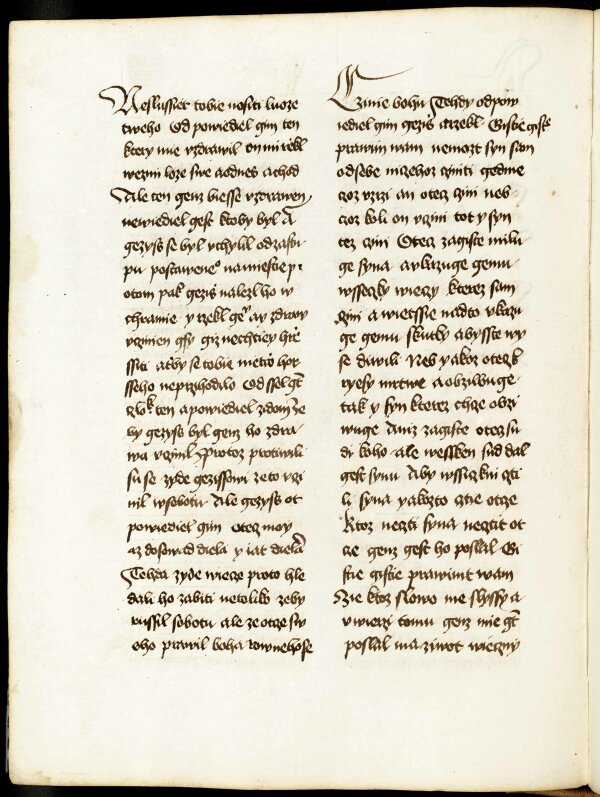 Neslussiet tobie nositi luoze
tweho Od powiediel gim ten
ktery mie vzdrawil on mi rzekl
wezmi loze swe a odnes a chod
Ale ten genz biesse vzdrawen
newiediel gest ktoby byl A
gezyss se byl vchylil od zastu
pu postaweneo na miestie p
otom pak gezis nalezl ho w
chramie y rzekl ge ay zdraw
vczinien gsy giz nechtiey hrze
ssiti at by se tobie nieczo hor
sseho neprzihodilo Od ssel gt
ten a powiediel zidom ze
by gezyss byl genz ho zdra
wa vczinil Protoz protiwili
su se zyde gezissowi ze to vczi
nil w sobotu Ale gezyss ot
powiediel gim otecz moy
az dosowad diela y iat dielam
Tehda zyde wiecze proto hle
dali ho zabiti netoliko zeby
russil sobotu ale ze otcze sw
eho prawil boha rownehose
Czinie bohu Tehdy odpow
iediel gim gezis a rzekl Gistie gistie
prawim wam nemoz t syn sam
od sebe niczehoz cziniti gedine
coz vzrzi an otecz czini neb
coz koli on vczini tot y syn
tez czini Otecz zagiste milu
ge syna a vkazuge gemu
wsseczky wieczy kterez sam
czini a wietssie nadto vkazu
ge gemu skutky abysste wy
se diwili Neb yakoz otecz k
rzyesy mrtwe a obziwuge
tak y syn kterez chcze obzi
wuge Aniz zagiste otecz su
di koho ale wessken sud dal
gest synu Aby wssiczkni czti
li syna yakozto cztie otcze
Ktoz neczti syna necztit ot
cze genz gest ho poslal Gi
stie gistie prawimt wam
Zie ktoz slowo me slyssy a
vwierzi tomu genz mie gt
poslal ma ziwot wieczny